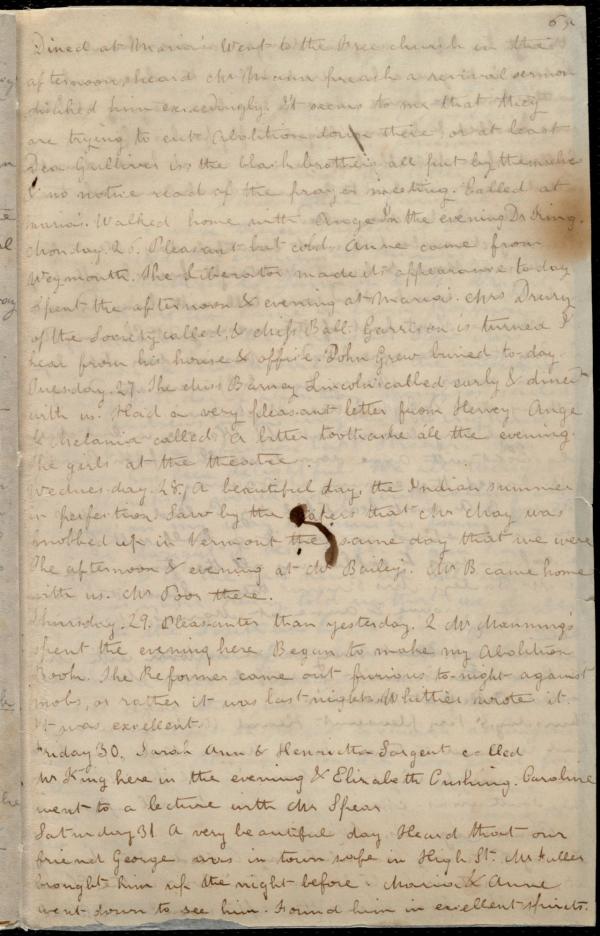 Dined at Maria's. Went to the Free church in the
afternoon, heard Mr Mann preach a revival sermon
disliked him exceedingly. It seems to me that they
are trying to cut Abolition down there, or at least
Dea Gulliver is, the black brothers all put by themselves
& no notice read of the prayer meeting. Called at
Maria's. Walked home with Ange In the evening Dr
Monday. 26. Pleasant but cold. Anne came from
Weymouth. The Liberator made its appearance to day
Spent the afternoon & evening at Maria's. Mrs Drury
of the Society called, & Miss Ball. Garrison is turned I
hear from his house & office. John Grew buried to-day.
Tuesday. 27. The Miss Barney Lincoln's called early & dined
with us. Had a very pleasant letter from Hervey Ange
& Melania called A bitter toothache all the evening.
The girls at the theatre.
Wednesday. 28. A beautiful day, the Indian summer
in perfection Saw by the papers that Mr May was
mobbed up in Vermont the same day that we were
The afternoon & evening at Mr Bailey's. Mr B came home
with us. Mr Poor there.
Thursday. 29. Pleasanter than yesterday. 2 Mr Manning's
spent the evening here Began to make my Abolition
Book. The Reformer came out furious to-night against
mobs, or rather it was last night. Whittier wrote it.
It was excellent.
Friday 30. Sarah Ann & Henrietta Sargent called
Mr King here in the evening & Elizabeth Cushing. Caroline
went to a lecture with Mr Spear
Saturday 31 A very beautiful day Heard that our
friend George was in town safe in High St. Mr Fuller
brought him up the night before. Maria & Anne
went down to see him. Found him in excellent spirits.